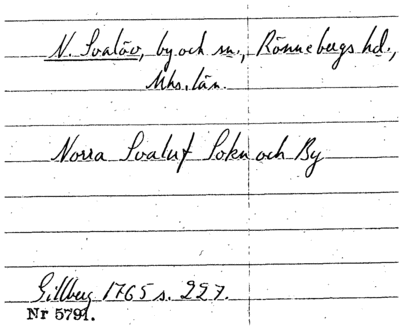 N. Svalöv, by och sn., Rönnebergs hd.,
Mhs. län.
Norra Svaluf Sokn och By
Gillberg 1765 s. 227.
Nr 5791.